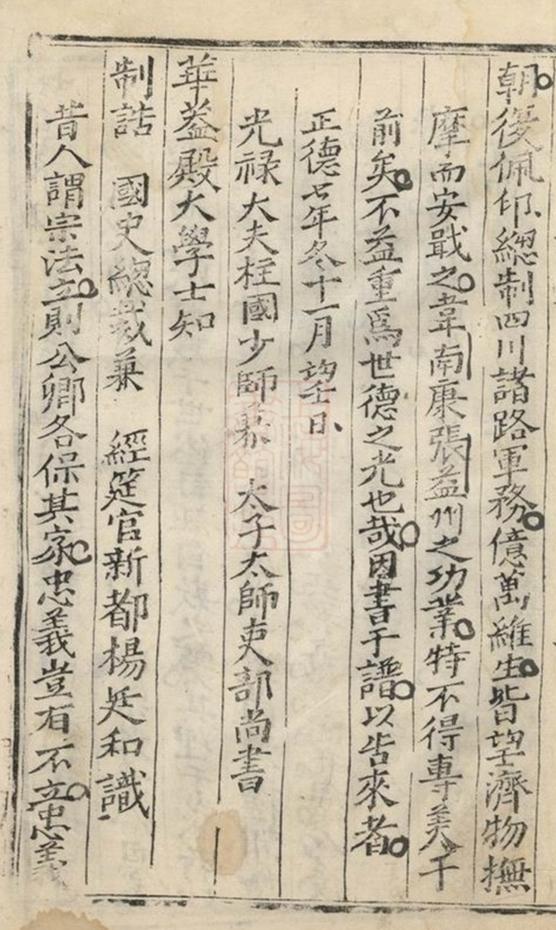 朝復佩印總制四川諸路軍務億萬維生皆望濟物撫
摩而安戢之韋南康張益州之功業特不得專美于
前矣不益重爲世德之光也哉因書于譜以告來者
正德七年冬十一月望日
光禄大夫柱國少師兼 太子太師吏部尚書
華蓋殿大學士知
制誥 國史總裁兼 經筵官新都楊廷和識
昔人謂宗法立則公卿各保其家忠義豈有不立忠義